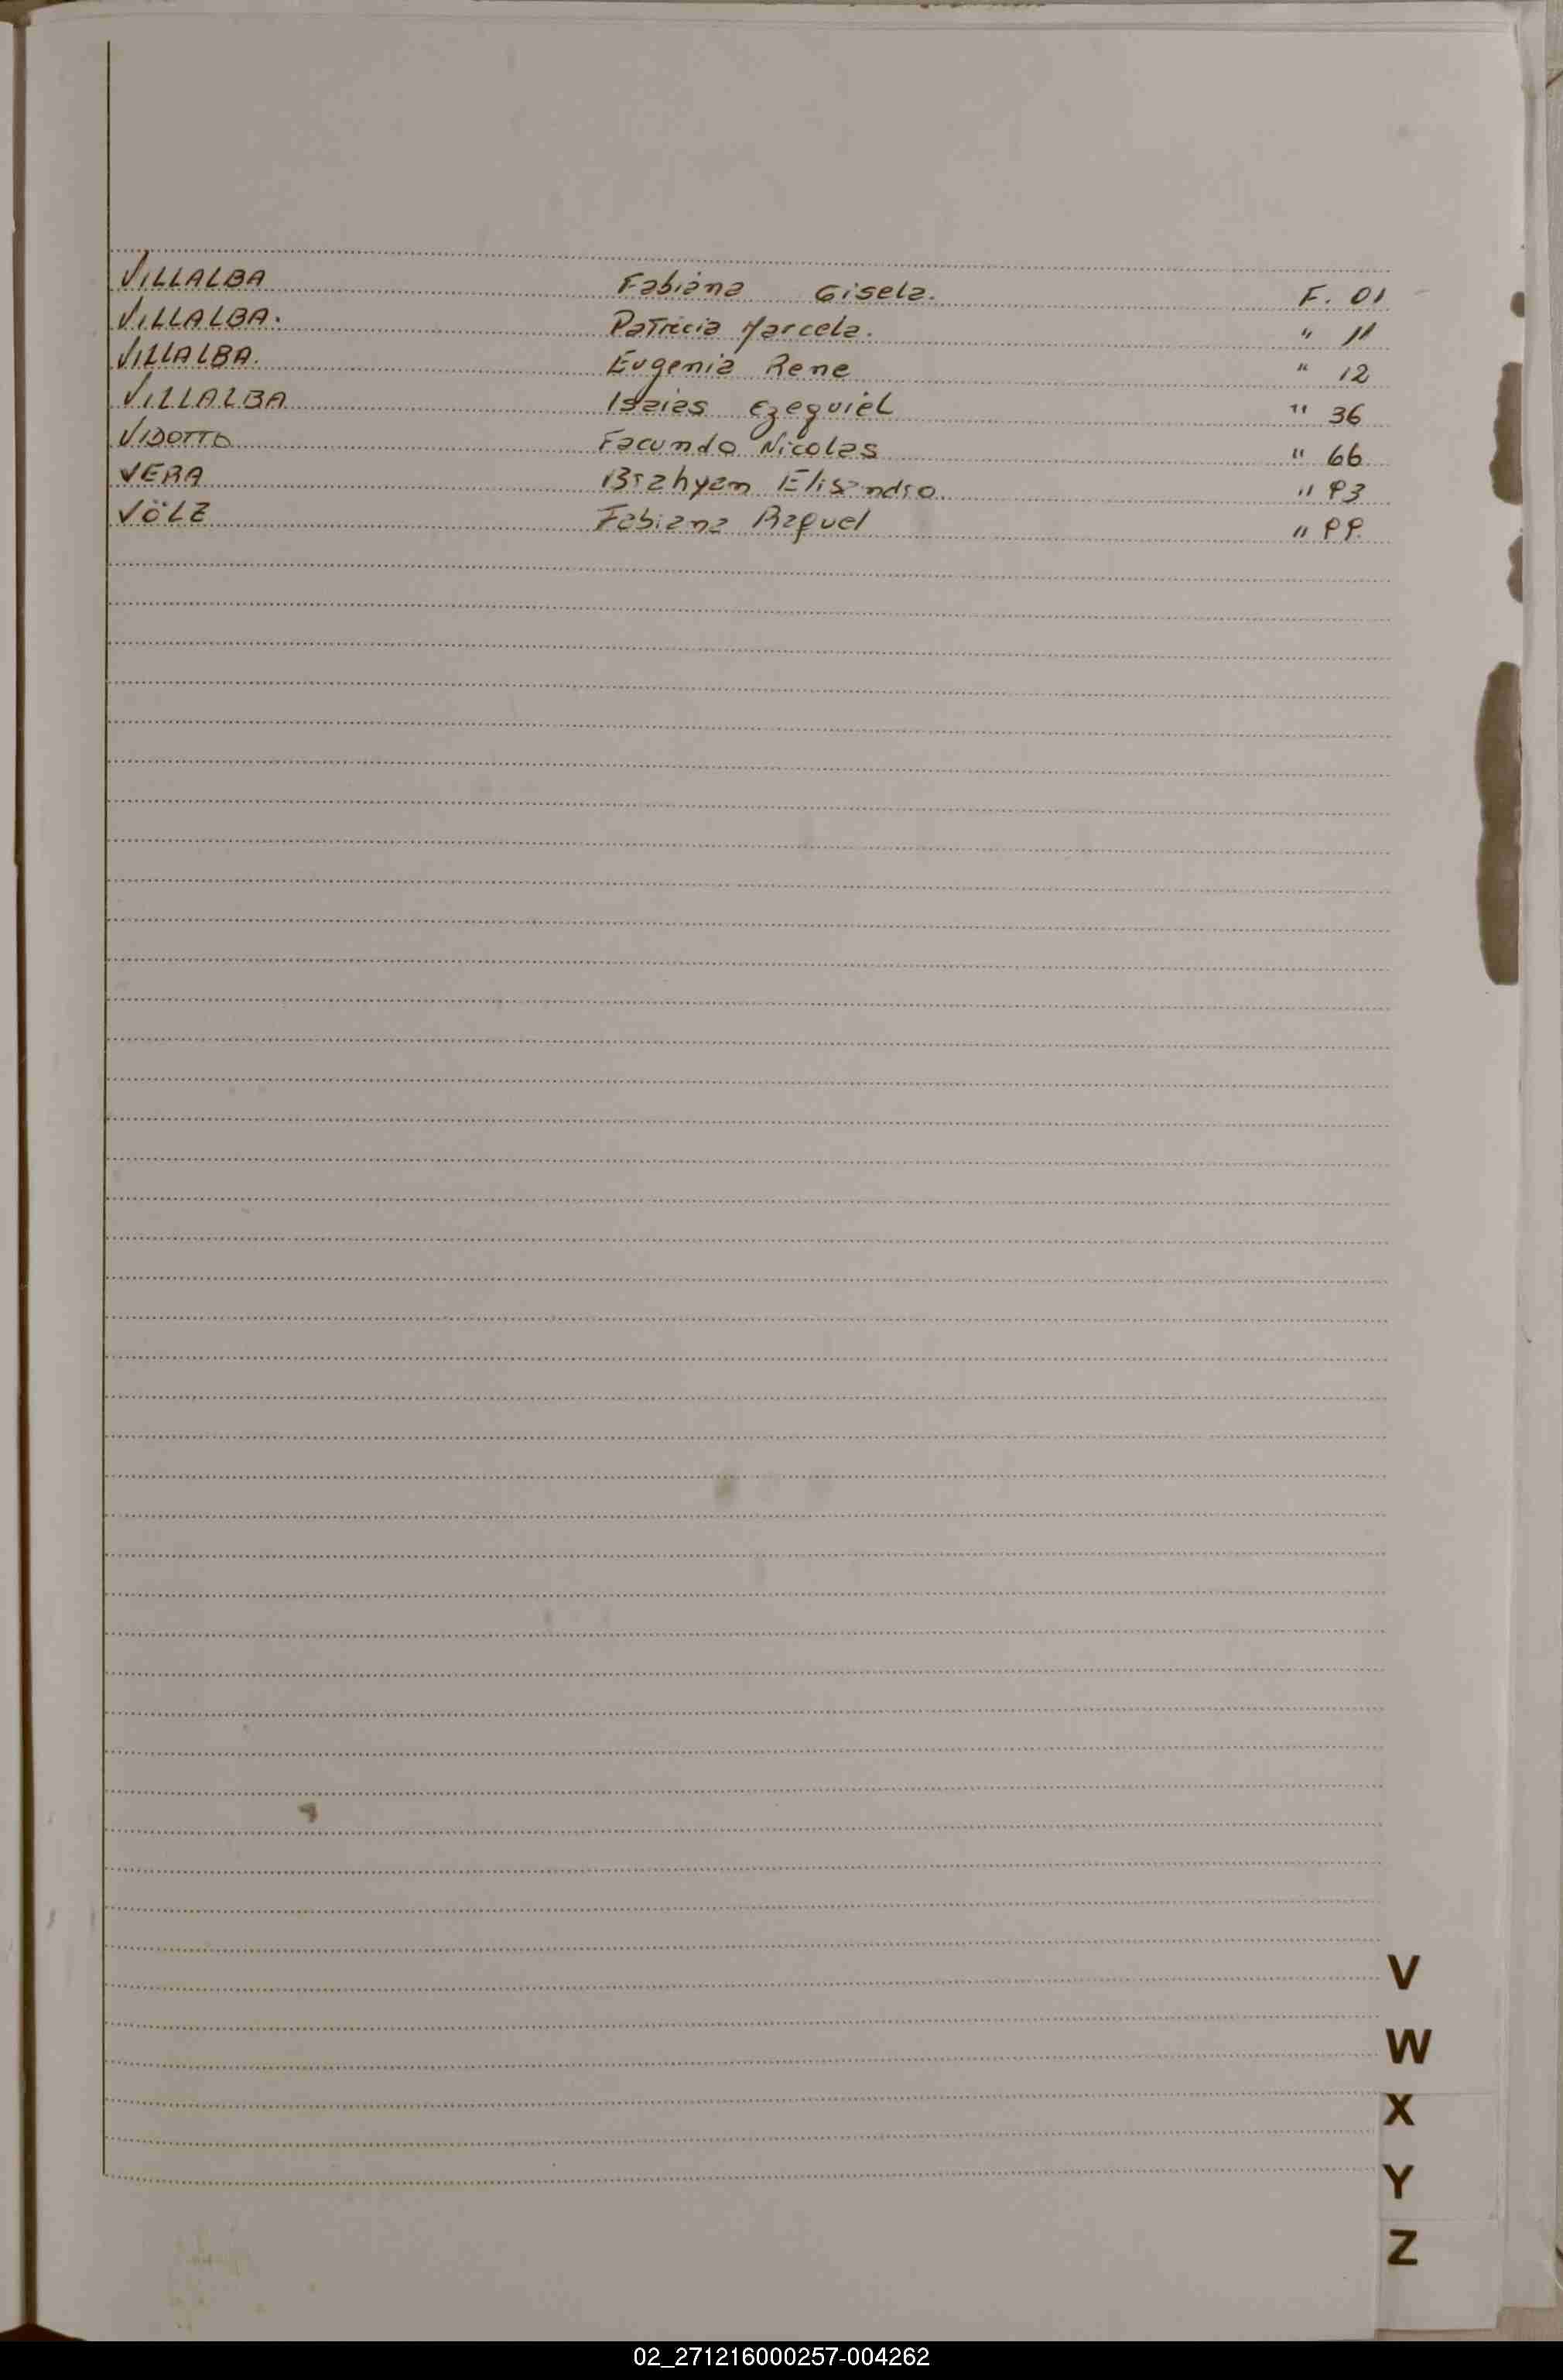 VILLALBA Fabiana Gisela. F. 01
VILLALBA. Patricia Marcela. " 11
VILLALBA. Eugenia Rene " 12
VILLALBA Isaias Ezequiel " 36
VIDOTTO Facundo Nicolas " 66
VERA Brahyam Elisandro " 93
VÖLZ Fabiana Raquel " 99.
V
W
X
Y
Z
02_271216000257-004262